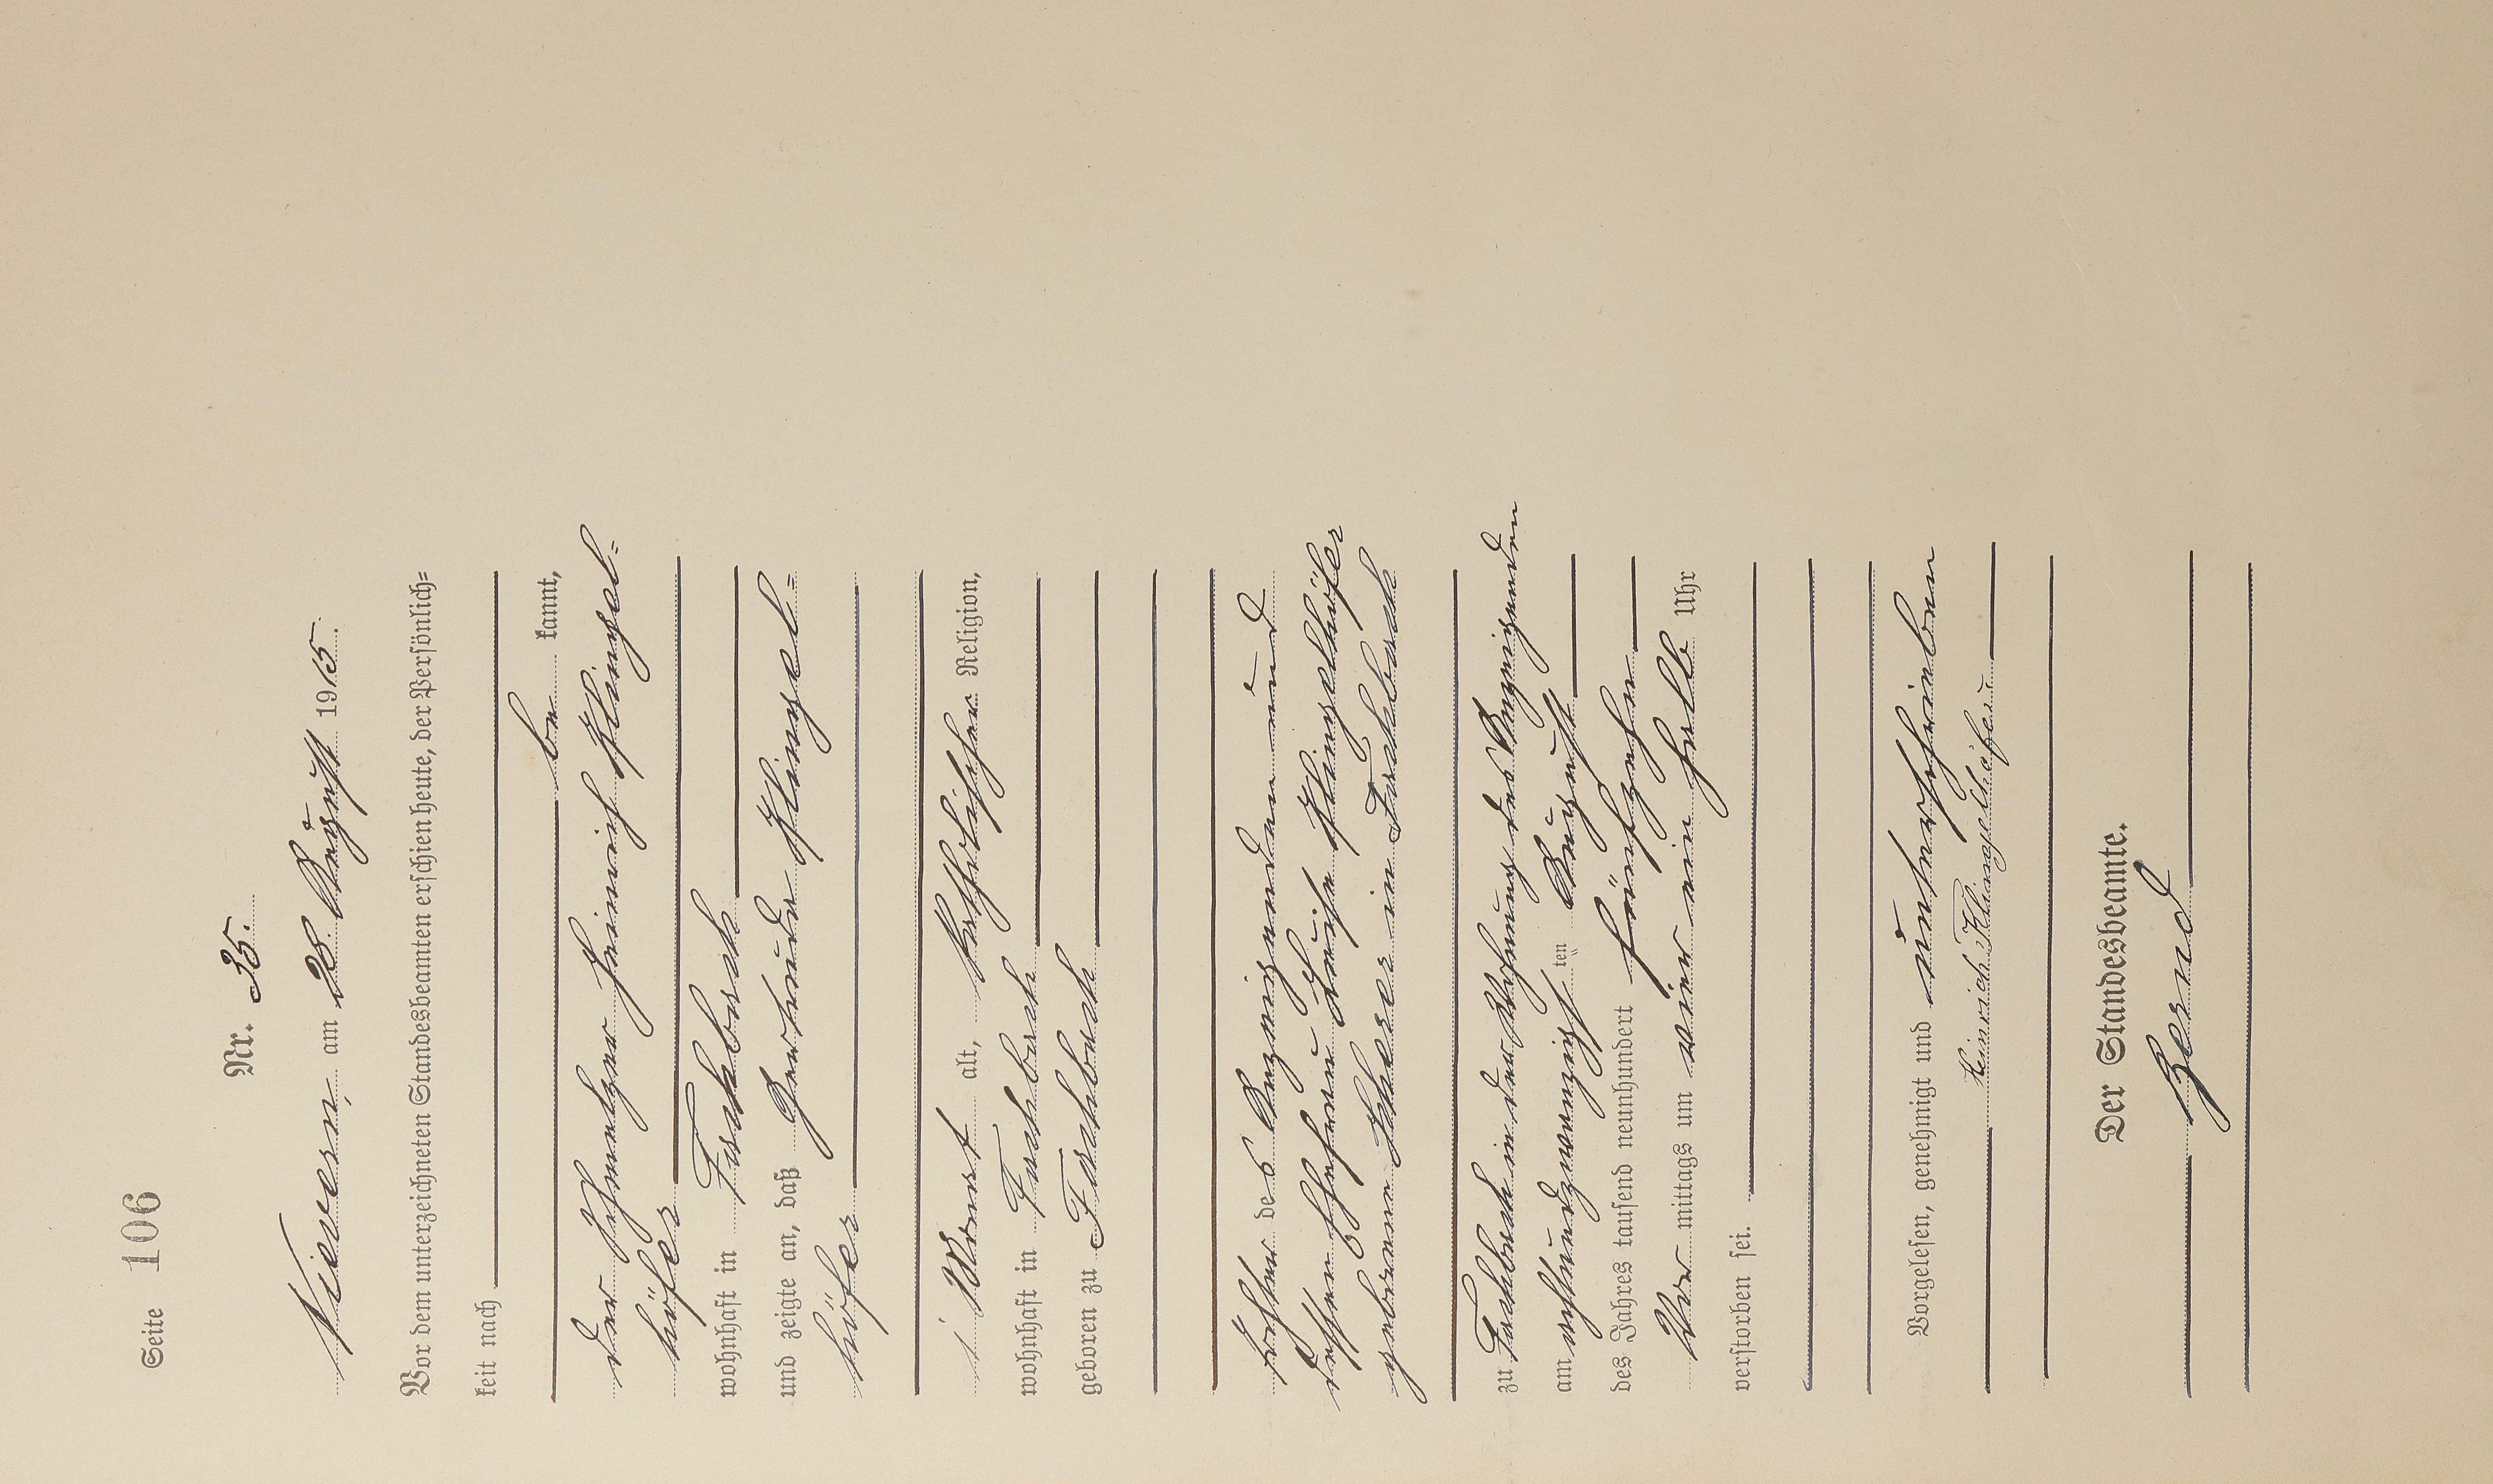 Seite 106
Nr. 35.
Nievern, am 28. August 1915.
Vor dem unterzeichneten Standesbeamten erschien heute, der Persönlich=
keit nach
be kannt,
der Heinrich Klingel=
höfer
wohnhaft in Fachbach
und zeigte an, daß Gertrude Klingel=
höfer
1 Monat alt, katholischer Religion,
wohnhaft in Fachbach
geboren zu Fachbach
Tochter des Anzeigenden und
dessen Ehefrau Luise Klingelhöfer
geborene in Fachbach
zu Fachbach in der Wohnung des Anzeigenden
am achtundzwanzigsten August
des Jahres tausend neunhundert fünfzehn
Vor mittags um vier ein halb Uhr
verstorben sei.
Vorgelesen, genehmigt und unterschrieben
Heinrich Klingelhöfer
Der Standesbeamte.
Zernd